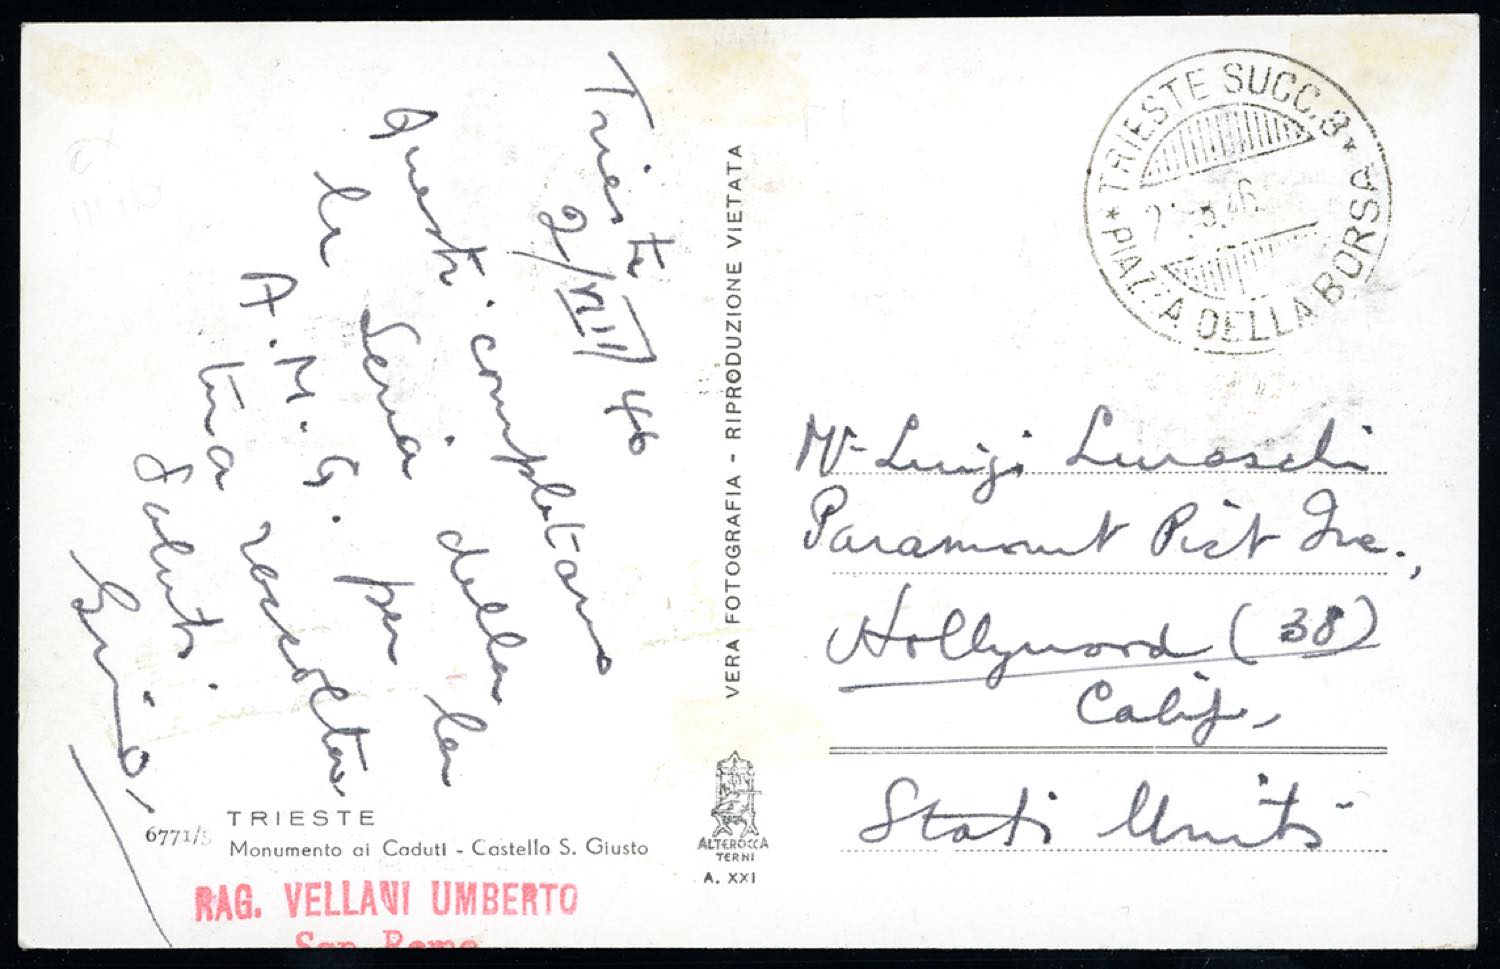 Trieste
2/VIII 46
Questi completano
la Seria della
A.M.G. per la
tua raccolta
Saluti
VERA FOTOGRAFIA - RIPRODUZIONE VIETATA
ALTEROCCA
TERNI
A. XXI
TRIESTE
6771/5
Monumento ai Caduti - Castello S. Giusto
RAG. VELLANI UMBERTO
San Remo
* TRIESTE SUCC. 3 *
PIAZZA DELLA BORSA
Mr Luigi Luraschi
Paramount Pict Inc.,
Hollywood (38)
Calif,
Stati Uniti